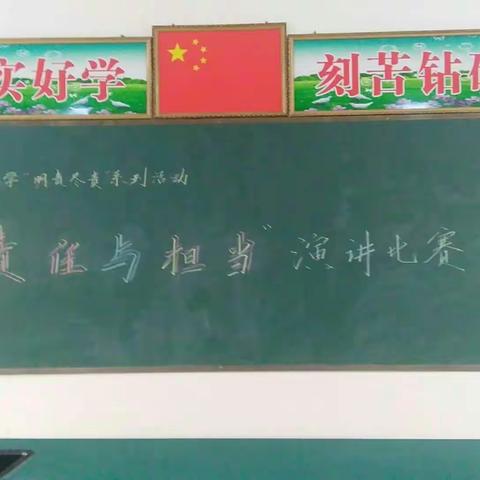 实好学
刻苦钻研
学"明责尽责"系列活动
责任与担当"演讲比赛